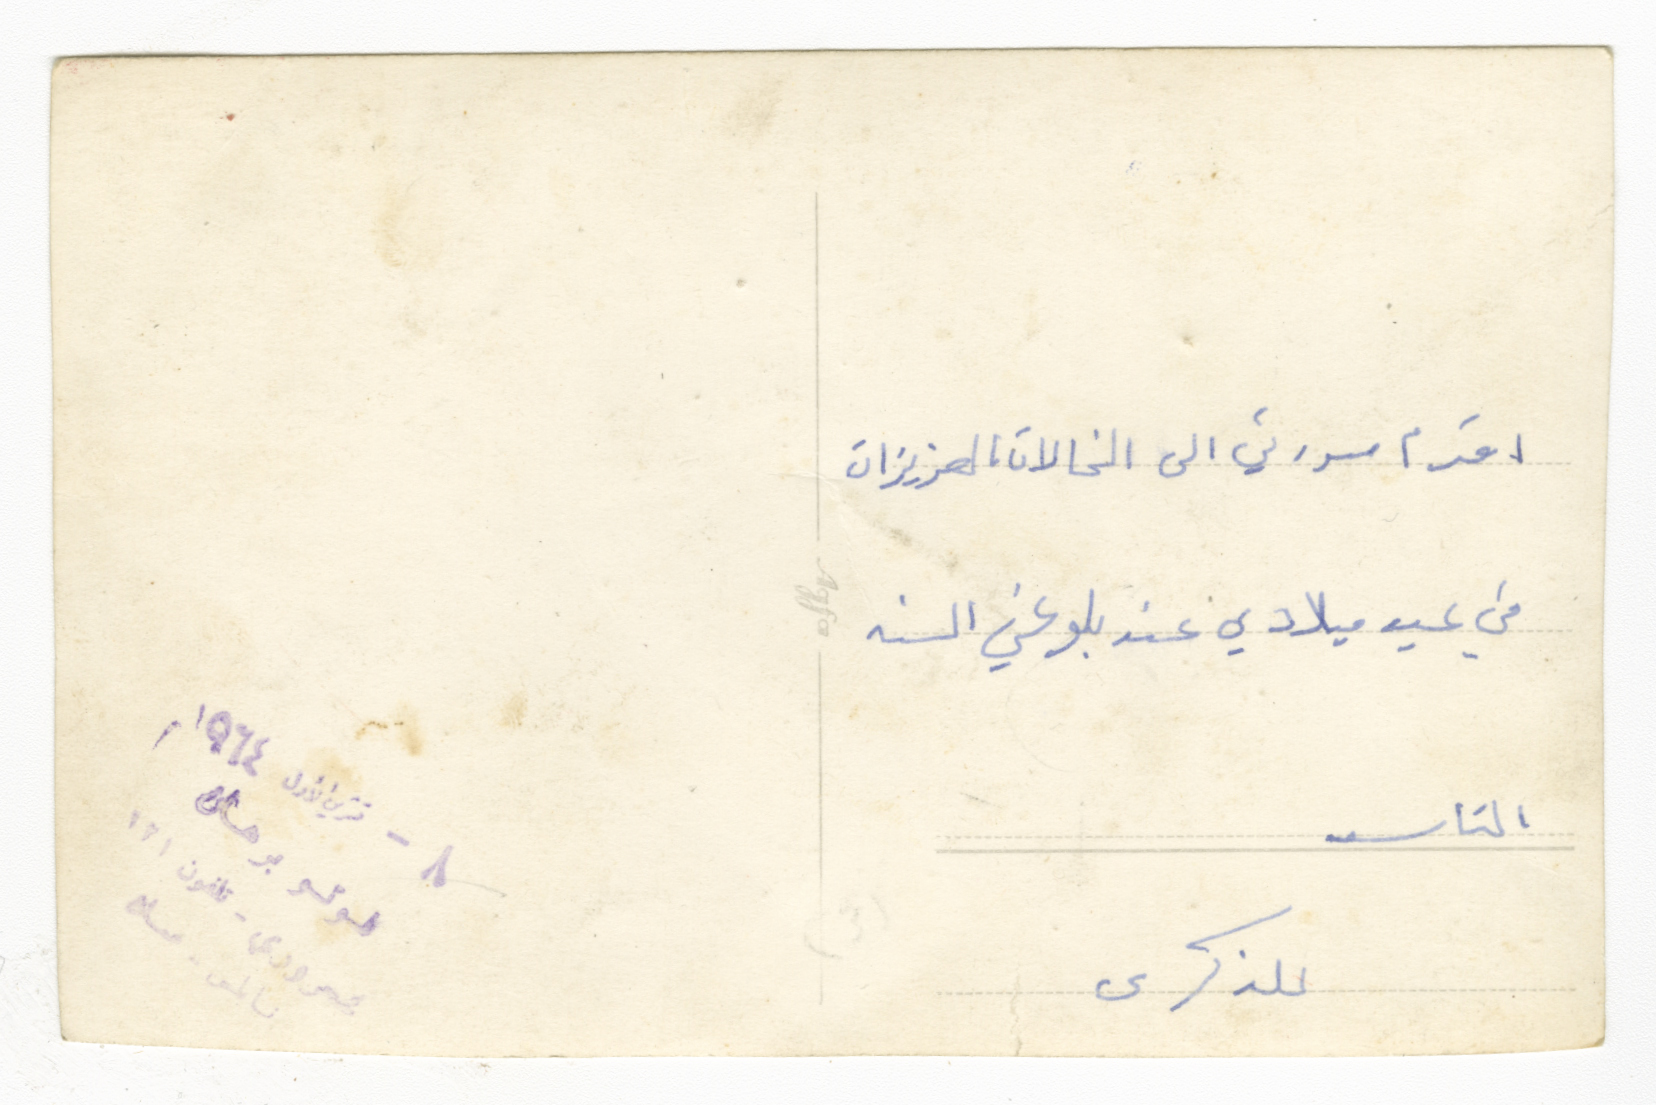 اقدم صورتي الى الخالات العزيزات
في عيد ميلادي عند بلوغي السنه
التاسعه
للذكرى
Agfa
(3)
٨ - تشرين الأول ١٩٦٤
فوتو
تلفون